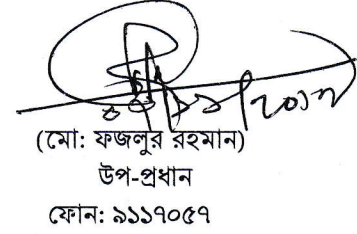 (মো: ফজলুর রহমান)
উপ-প্রধান
ফোন: ৯১১৭০৫৭